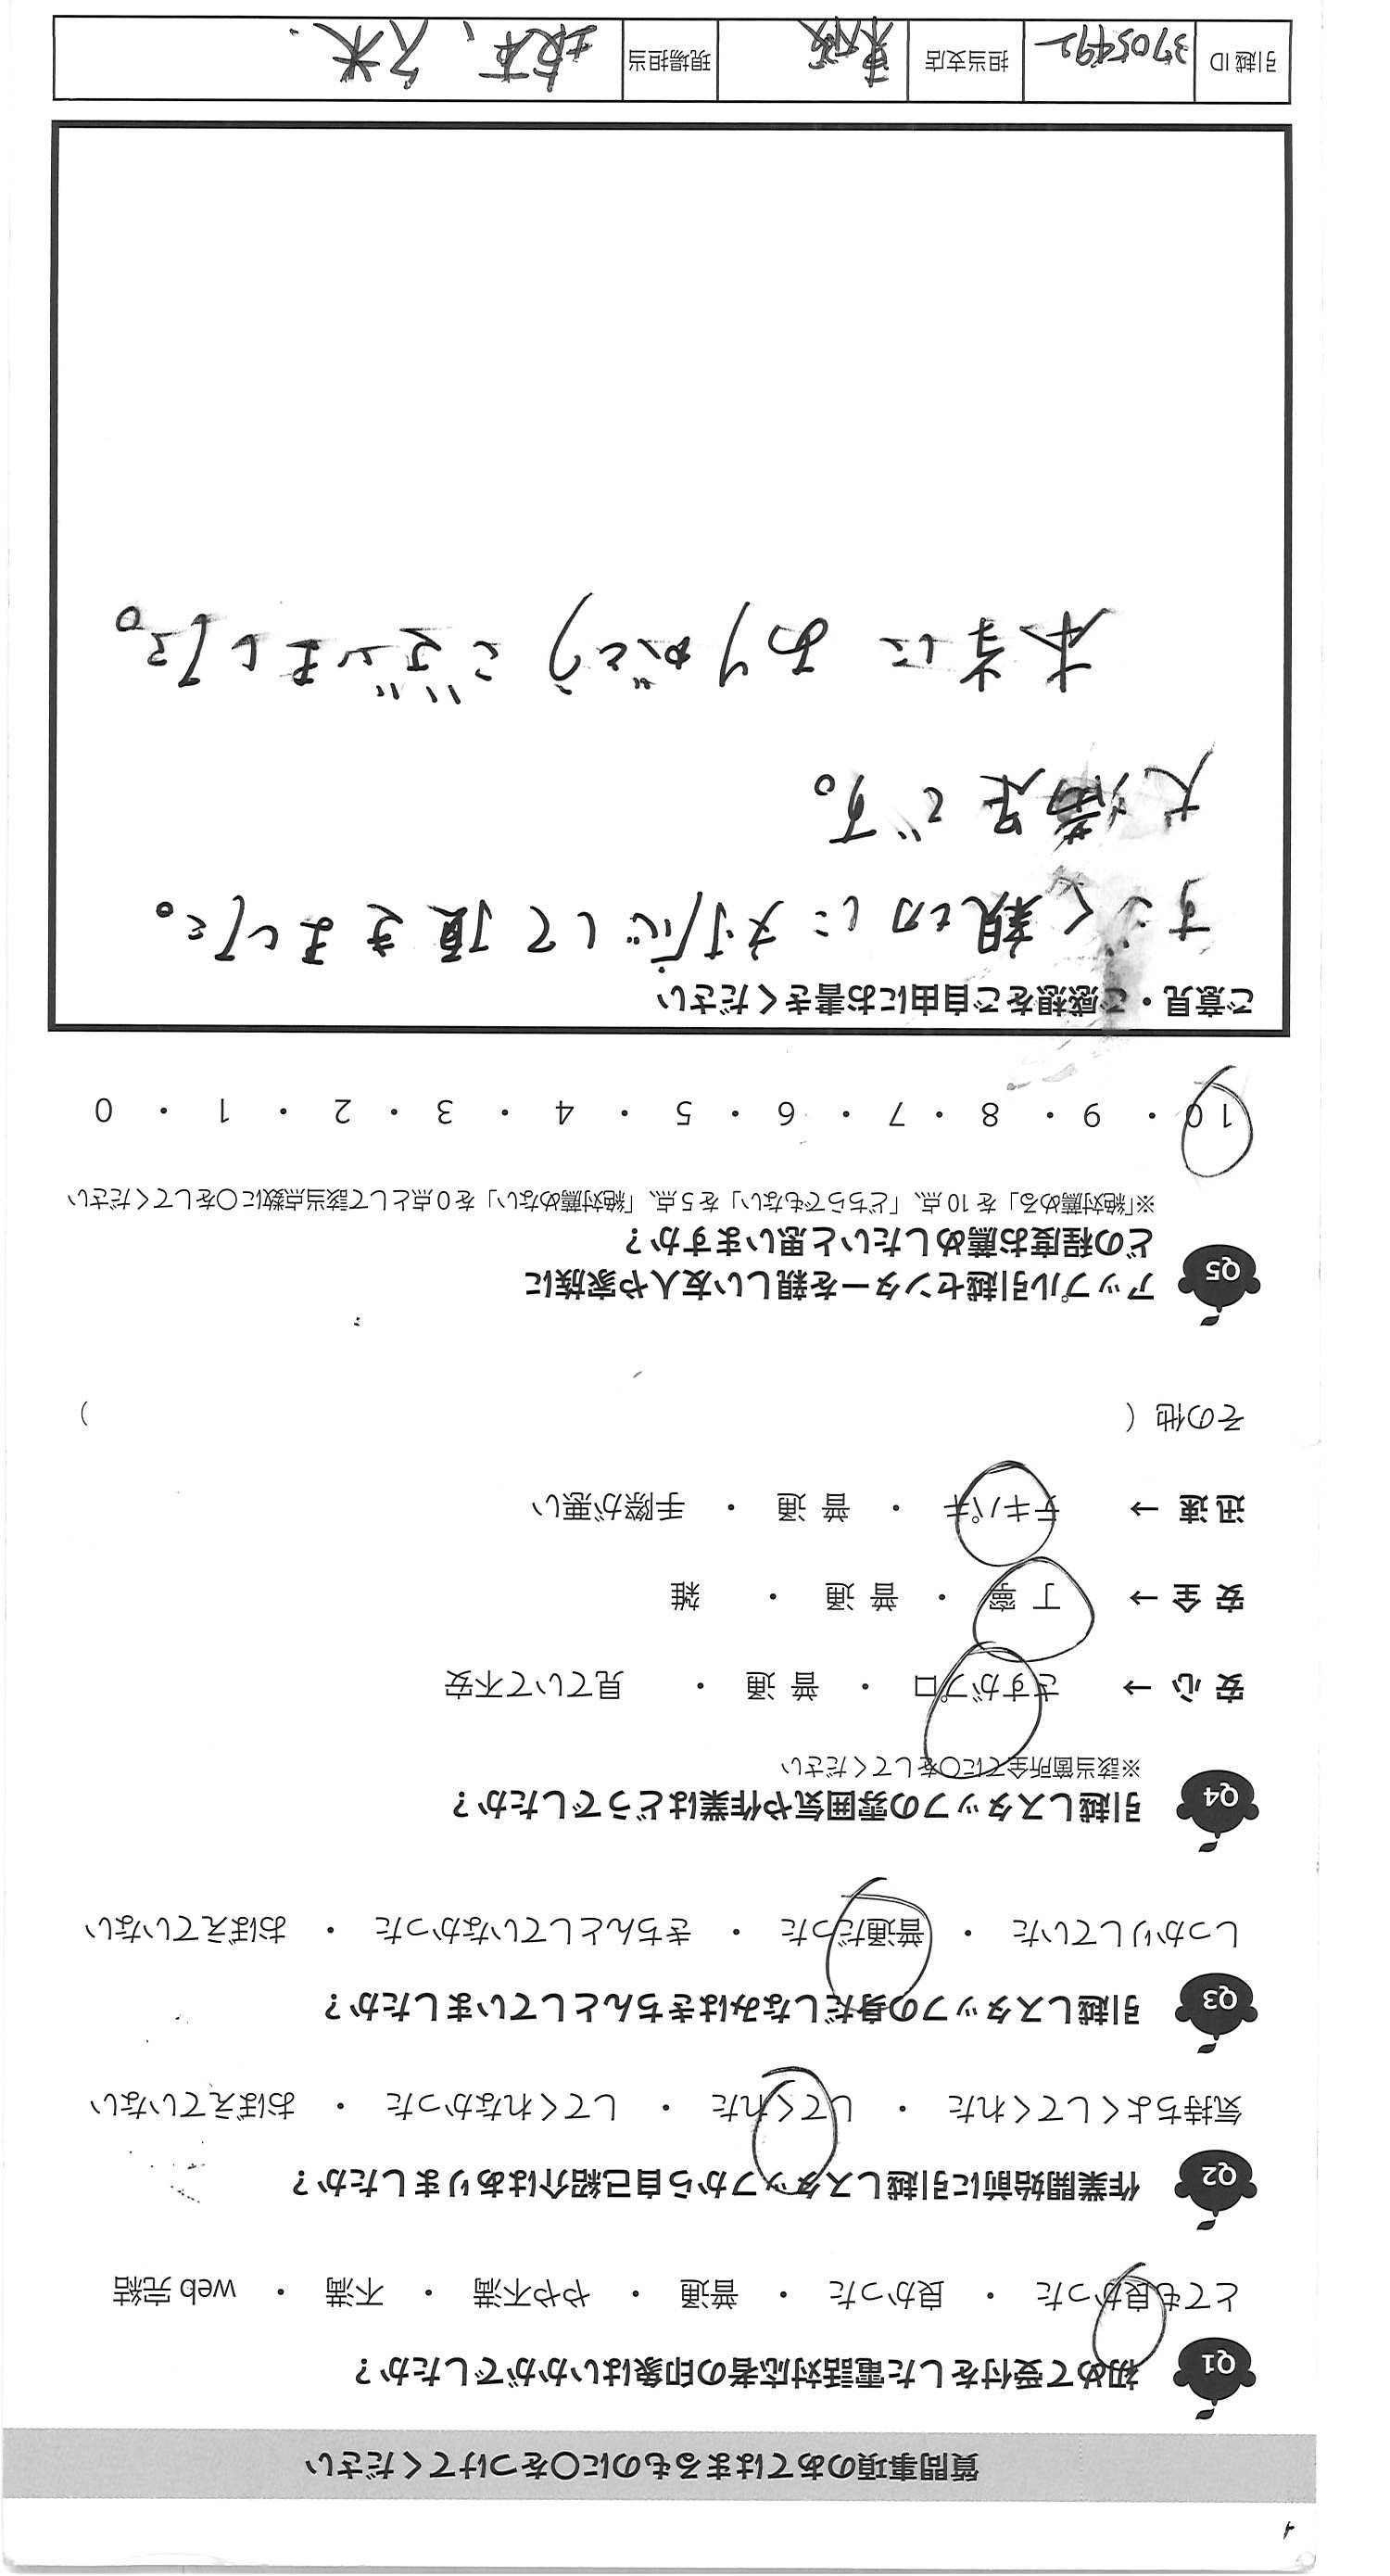 質問事項のあてはまるものに〇をつけてください
Q1 初めて受付をした電話対応者の印象はいかがでしたか？
とても良かった ・ 良かった ・ 普通 ・ やや不満 ・ 不満 ・ web 完結
Q2 作業開始前に引越しスタッフから自己紹介はありましたか？
気持ちよくしてくれた ・ してくれた ・ してくれなかった ・ おぼえていない
Q3 引越しスタッフの身だしなみはきちんとしていましたか？
しっかりしていた ・ 普通だった ・ きちんとしていなかった ・ おぼえていない
Q4 引越しスタッフの雰囲気や作業はどうでしたか？
※該当箇所全てに〇をしてください
安 心 → さすがプロ ・ 普 通 ・ 見ていて不安
安 全 → 丁 寧 ・ 普 通 ・ 雑
迅 速 → テキパキ ・ 普 通 ・ 手際が悪い
その他（ ）
Q5 アップル引越センターを親しい友人や家族に
どの程度お薦めしたいと思いますか？
※「絶対薦める」を 10 点、「どちらでもない」を 5 点、「絶対薦めない」を 0 点として該当点数に〇をしてください
10 ・ 9 ・ 8 ・ 7 ・ 6 ・ 5 ・ 4 ・ 3 ・ 2 ・ 1 ・ 0
ご意見・ご感想をご自由にお書きください
すごく親切に対応して頂きました。
大満足です。
本当にありがとうございました。
引越 ID 3705492 担当支店 現場担当 坂本、久米